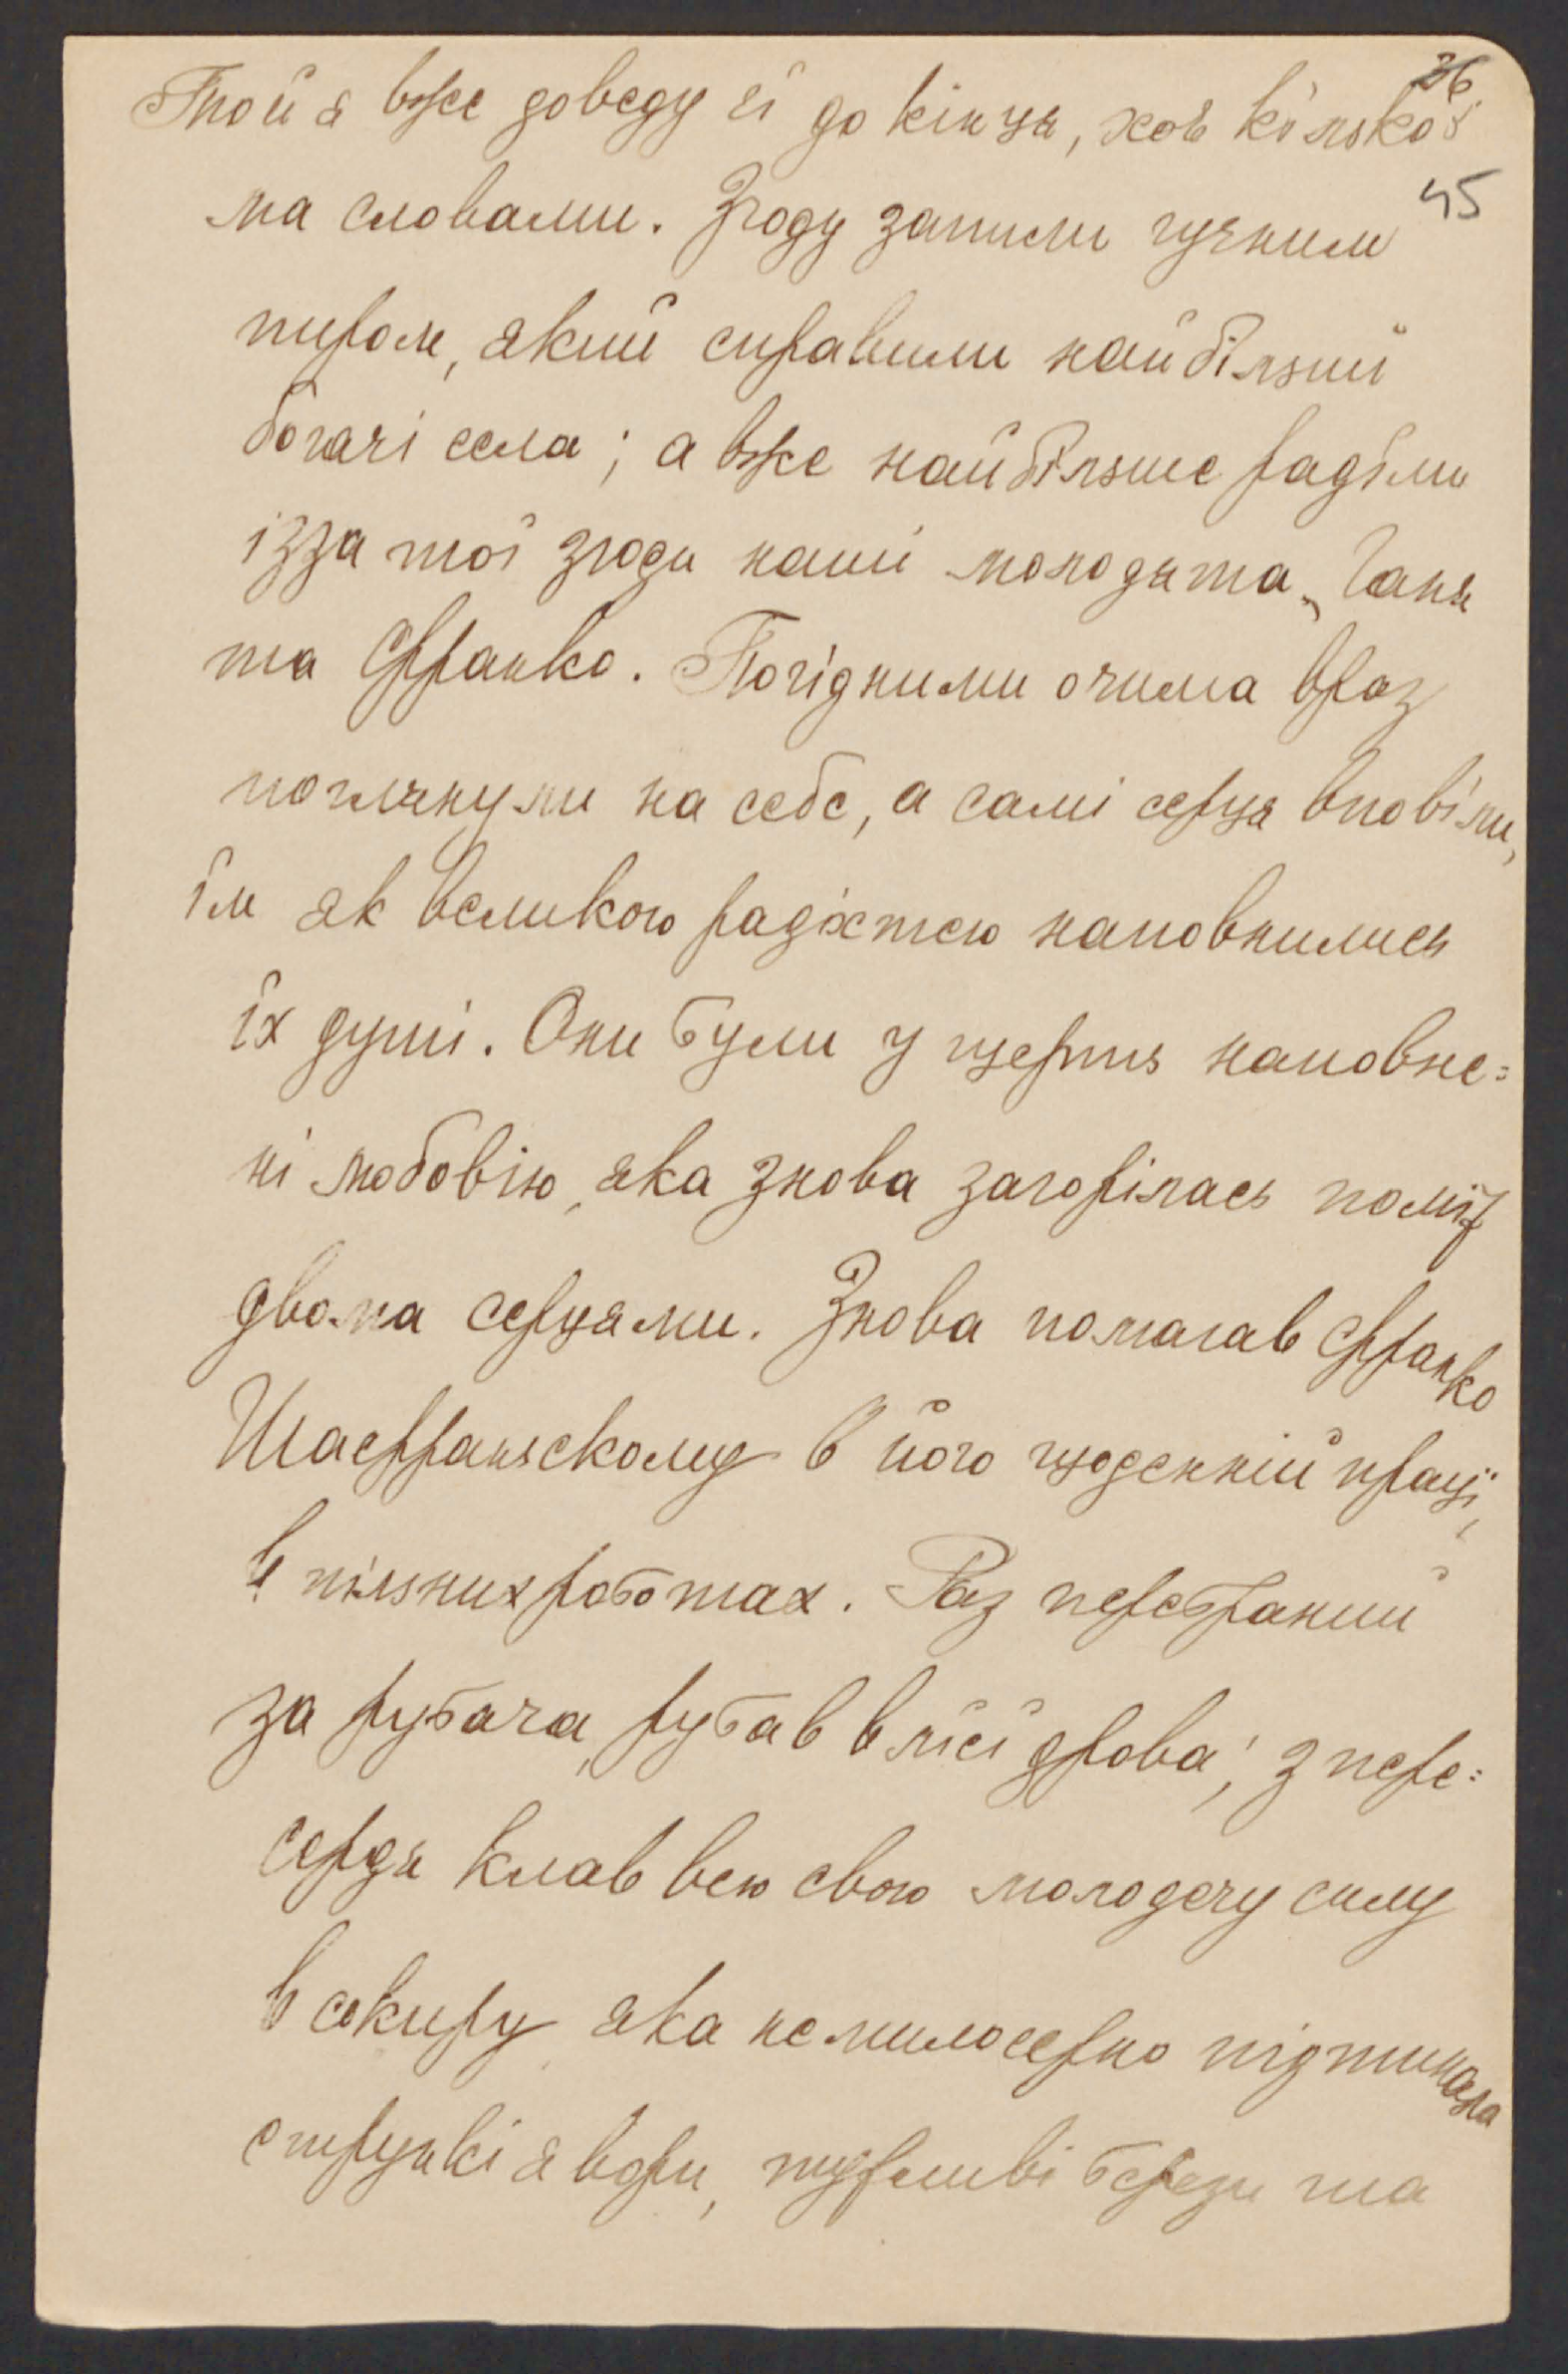 36
Той я вже доведу єї до кінця, хоч кілько=
45
ма словами. Згоду запили гучним
пиром, який справили найбільшиї
богачі села; а вже найбільше раділи
ізза тої згоди наші молодята, Ганя
та Франко. Погідними очима враз
поглянули на себе, а самі серця вповіли,
їм як великою радістею наповнились
їх душі. Они були у щерть наповне=
ні любовію, яка знова загорілась поміж
двома серцями. Знова помагав Франко
Шафранскому в його щоденній праці,
в пільних роботах. Раз перебраний
за рубача, рубав в лісі дрова; з пере=
сердя клав всю свою молодечу силу
в сокиру яка немилосерно підтинала
стрункі явори, тужливі берези та